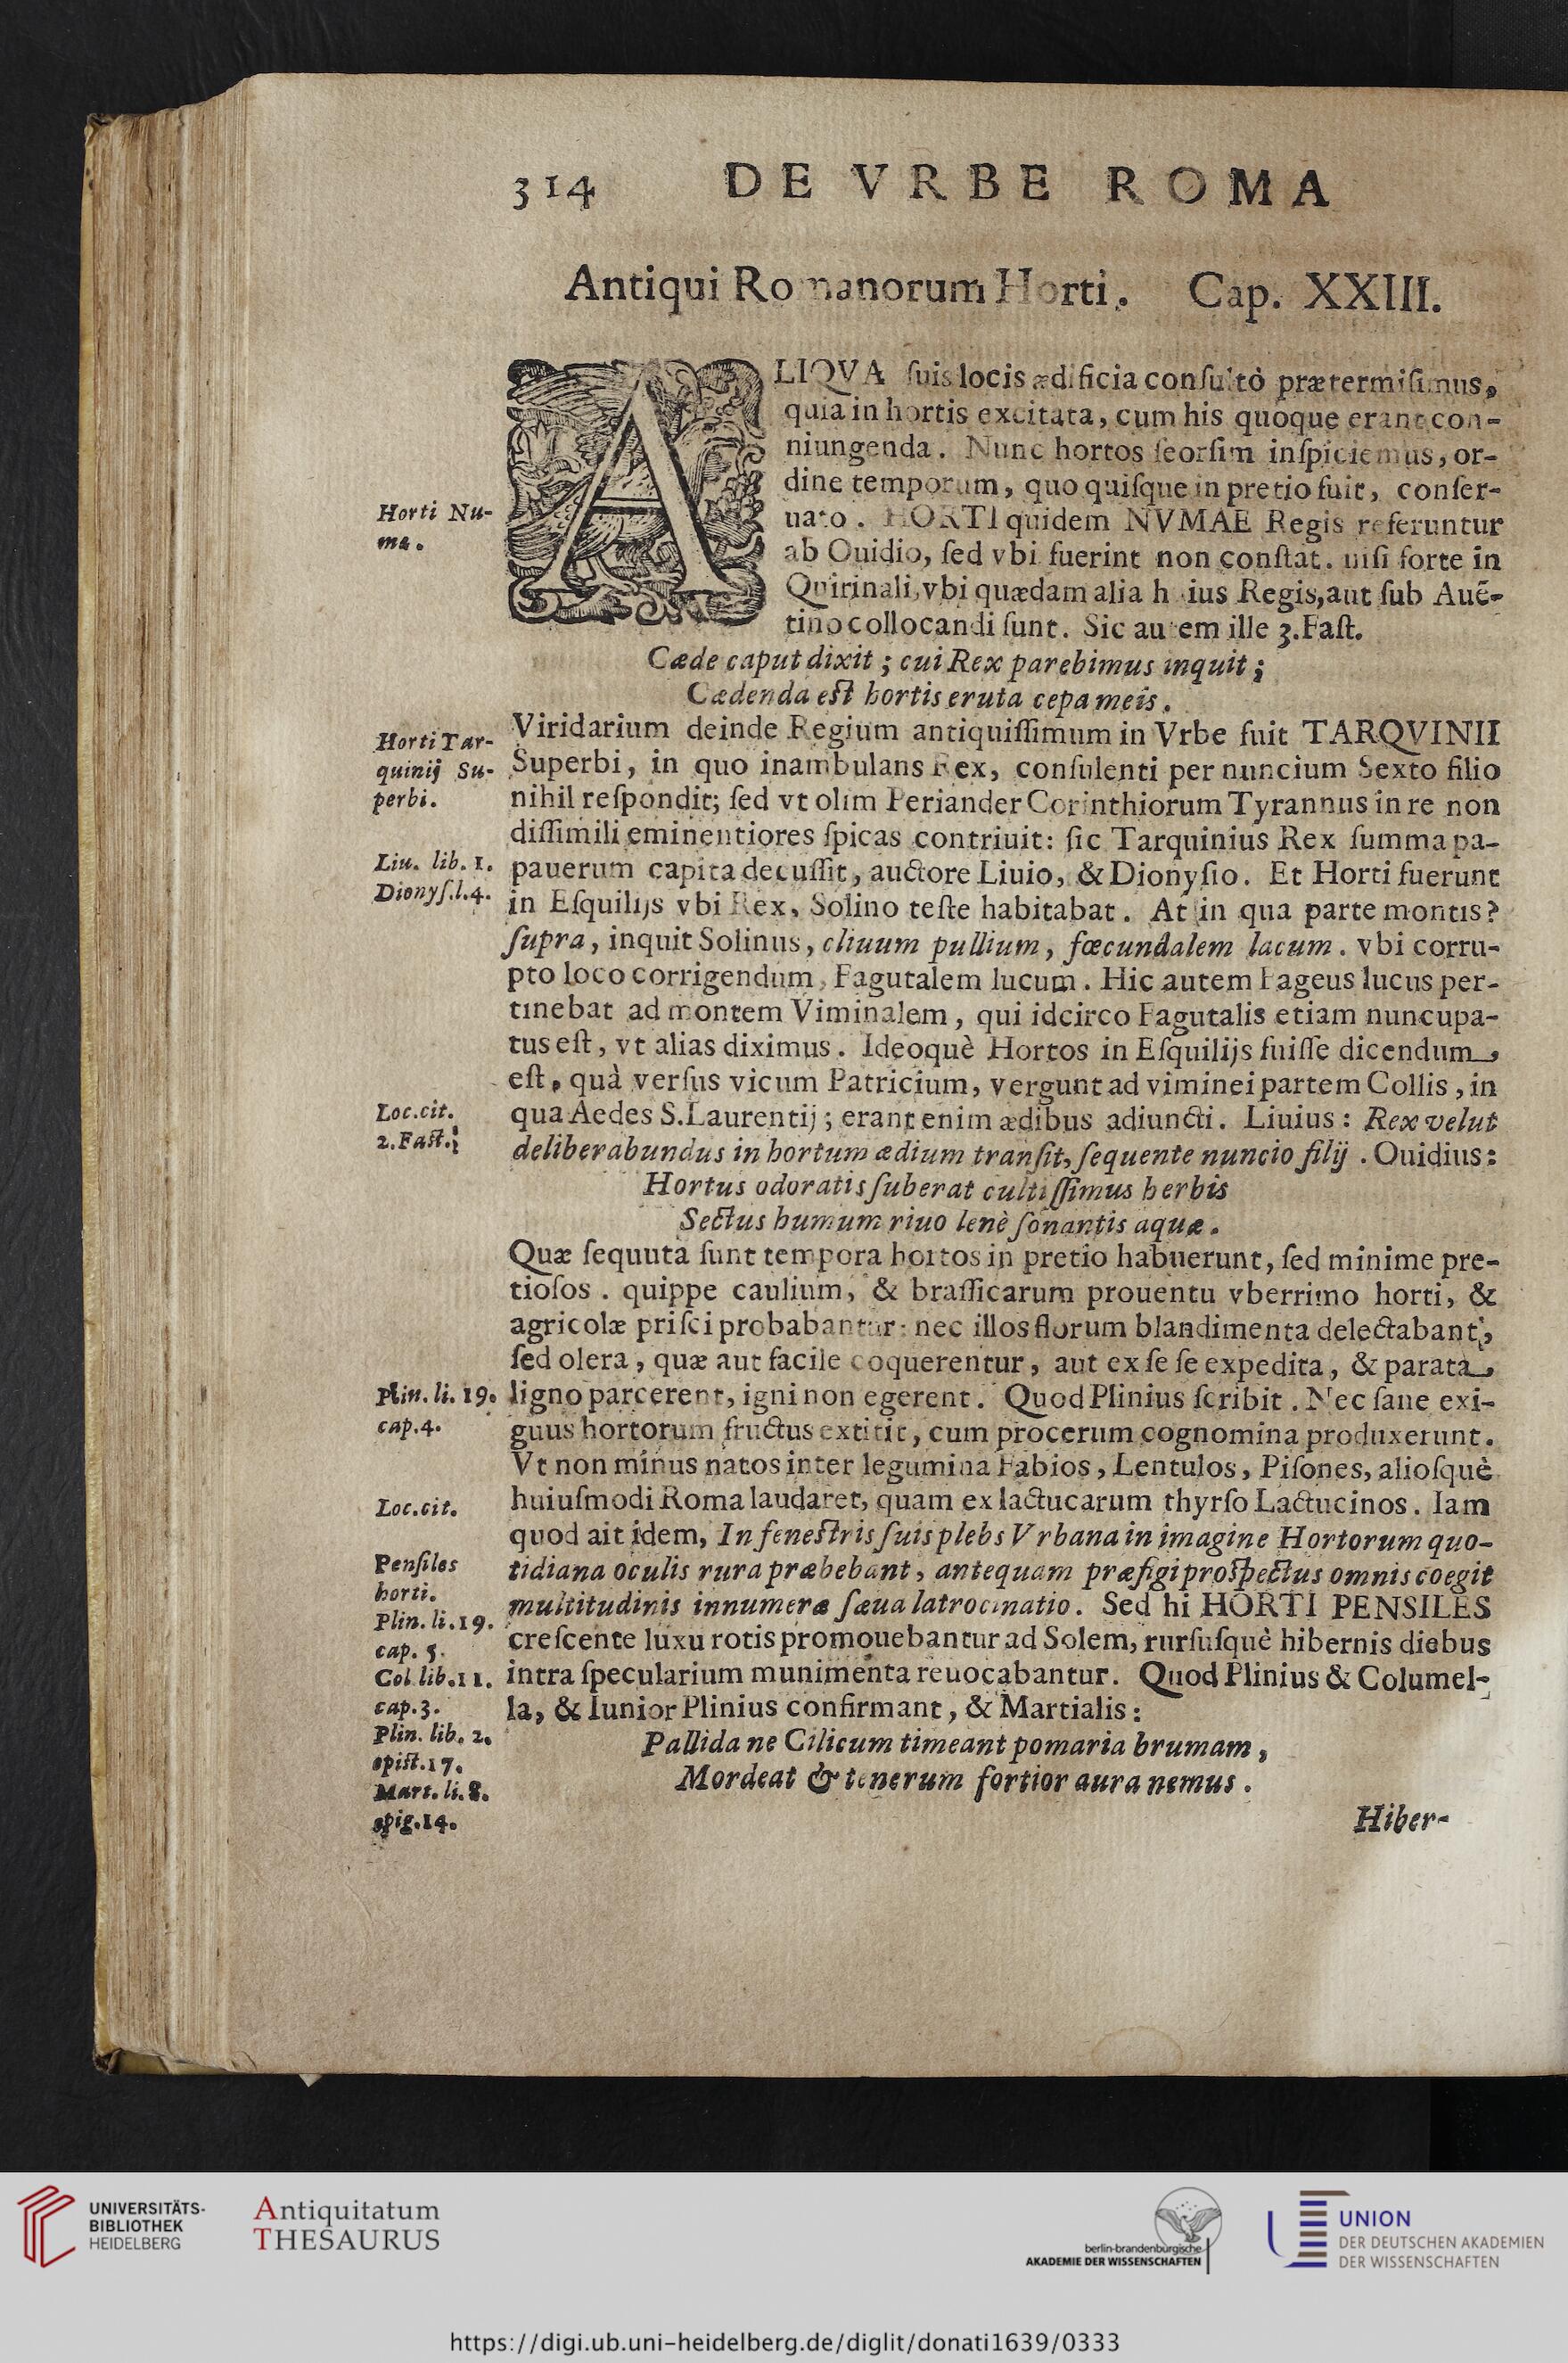 314 DE VRBE ROMA
Antiqui Romanorum Horti. Cap. XXIII.
ALIQVA ſuis locis ædificia conſultò prætermiſimus,
quia in hortis excitata, cum his quoque erant con-
niungenda. Nunc hortos ſeorſim inſpiciemus, or-
dine temporum, quo quiſque in pretio fuit, conſer-
uato. HORTI quidem NVMAE Regis referuntur
ab Ouidio, ſed vbi fuerint non conſtat. niſi forte in
Quirinali, vbi quædam alia huius Regis, aut ſub Auē-
tino collocandi ſunt. Sic autem ille 3. Faſt.
Horti Nu-
ma.
Cæde caput dixit; cui Rex parebimus inquit;
Cædenda eſt hortis eruta cepa meis.
Viridarium deinde Regium antiquiſſimum in Vrbe fuit TARQVINII
Superbi, in quo inambulans Rex, conſulenti per nuncium Sexto filio
nihil reſpondit; ſed vt olim Periander Corinthiorum Tyrannus in re non
diſſimili eminentiores ſpicas contriuit: ſic Tarquinius Rex ſumma pa-
pauerum capita decuſſit, auctore Liuio, & Dionyſio. Et Horti fuerunt
in Eſquilijs vbi Rex, Solino teſte habitabat. At in qua parte montis?
ſupra, inquit Solinus, cliuum pullium, fœcundalem lacum. vbi corru-
pto loco corrigendum, Fagutalem lucum. Hic autem Fageus lucus per-
tinebat ad montem Viminalem, qui idcirco Fagutalis etiam nuncupa-
tus eſt, vt alias diximus. Ideoquè Hortos in Eſquilijs fuiſſe dicendum
eſt, quà verſus vicum Patricium, vergunt ad viminei partem Collis, in
qua Aedes S. Laurentij; erant enim ædibus adiuncti. Liuius: Rex velut
deliberabundus in hortum ædium tranſit, ſequente nuncio filij. Ouidius:
Horti Tar-
quinij Su-
perbi.
Liu. lib. 1.
Dionyſ. l. 4.
Loc. cit.
2. Faſt.
Hortus odoratis ſuberat cultiſſimus herbis
Sectus humum riuo lenè ſonantis aquæ.
Quæ ſequuta ſunt tempora hortos in pretio habuerunt, ſed minime pre-
tioſos. quippe caulium, & braſſicarum prouentu vberrimo horti, &
agricolæ priſci probabantur: nec illos florum blandimenta delectabant,
ſed olera, quæ aut facile coquerentur, aut ex ſe ſe expedita, & parata
ligno parcerent, igni non egerent. Quod Plinius ſcribit. Nec ſane exi-
guus hortorum fructus extitit, cum procerum cognomina produxerunt.
Vt non minus natos inter legumina Fabios, Lentulos, Piſones, alioſquè
huiuſmodi Roma laudaret, quam ex lactucarum thyrſo Lactucinos. Iam
quod ait idem, In feneſtris ſuis plebs Vrbana in imagine Hortorum quo-
tidiana oculis rura præbebant, antequam præfigi proſpectus omnis coegit
multitudinis innumeræ ſæua latrocinatio. Sed hi HORTI PENSILES
creſcente luxu rotis promouebantur ad Solem, rurſuſquè hibernis diebus
intra ſpecularium munimenta reuocabantur. Quod Plinius & Columel-
la, & Iunior Plinius confirmant, & Martialis:
Plin. li. 19.
cap. 4.
Loc. cit.
Penſiles
horti.
Plin. li. 19.
cap. 5.
Col. lib. 11.
cap. 3.
Plin. lib. 2.
epiſt. 17.
Mart. li. 8.
epig. 14.
Pallida ne Cilicum timeant pomaria brumam,
Mordeat & tenerum fortior aura nemus.
Hiber-
UNIVERSITÄTS-
BIBLIOTHEK
HEIDELBERG
Antiquitatum
THESAURUS
berlin-brandenburgische
AKADEMIE DER WISSENSCHAFTEN
UNION
DER DEUTSCHEN AKADEMIEN
DER WISSENSCHAFTEN
https://digi.ub.uni-heidelberg.de/diglit/donati1639/0333